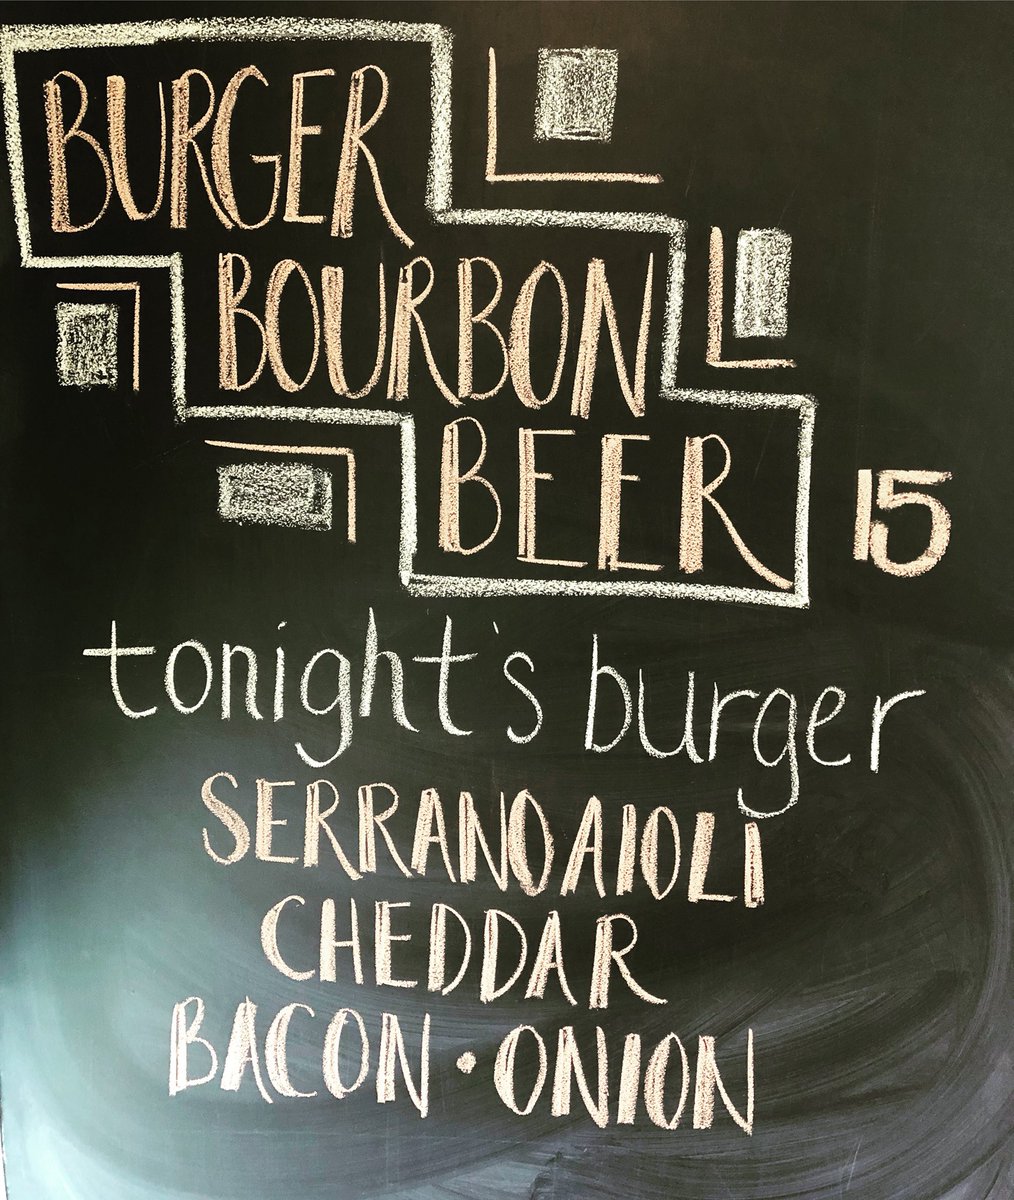 BURGER
BOURBON
BEER 15
tonight's burger
SERRANO AIOLI
CHEDDAR
BACON · ONION